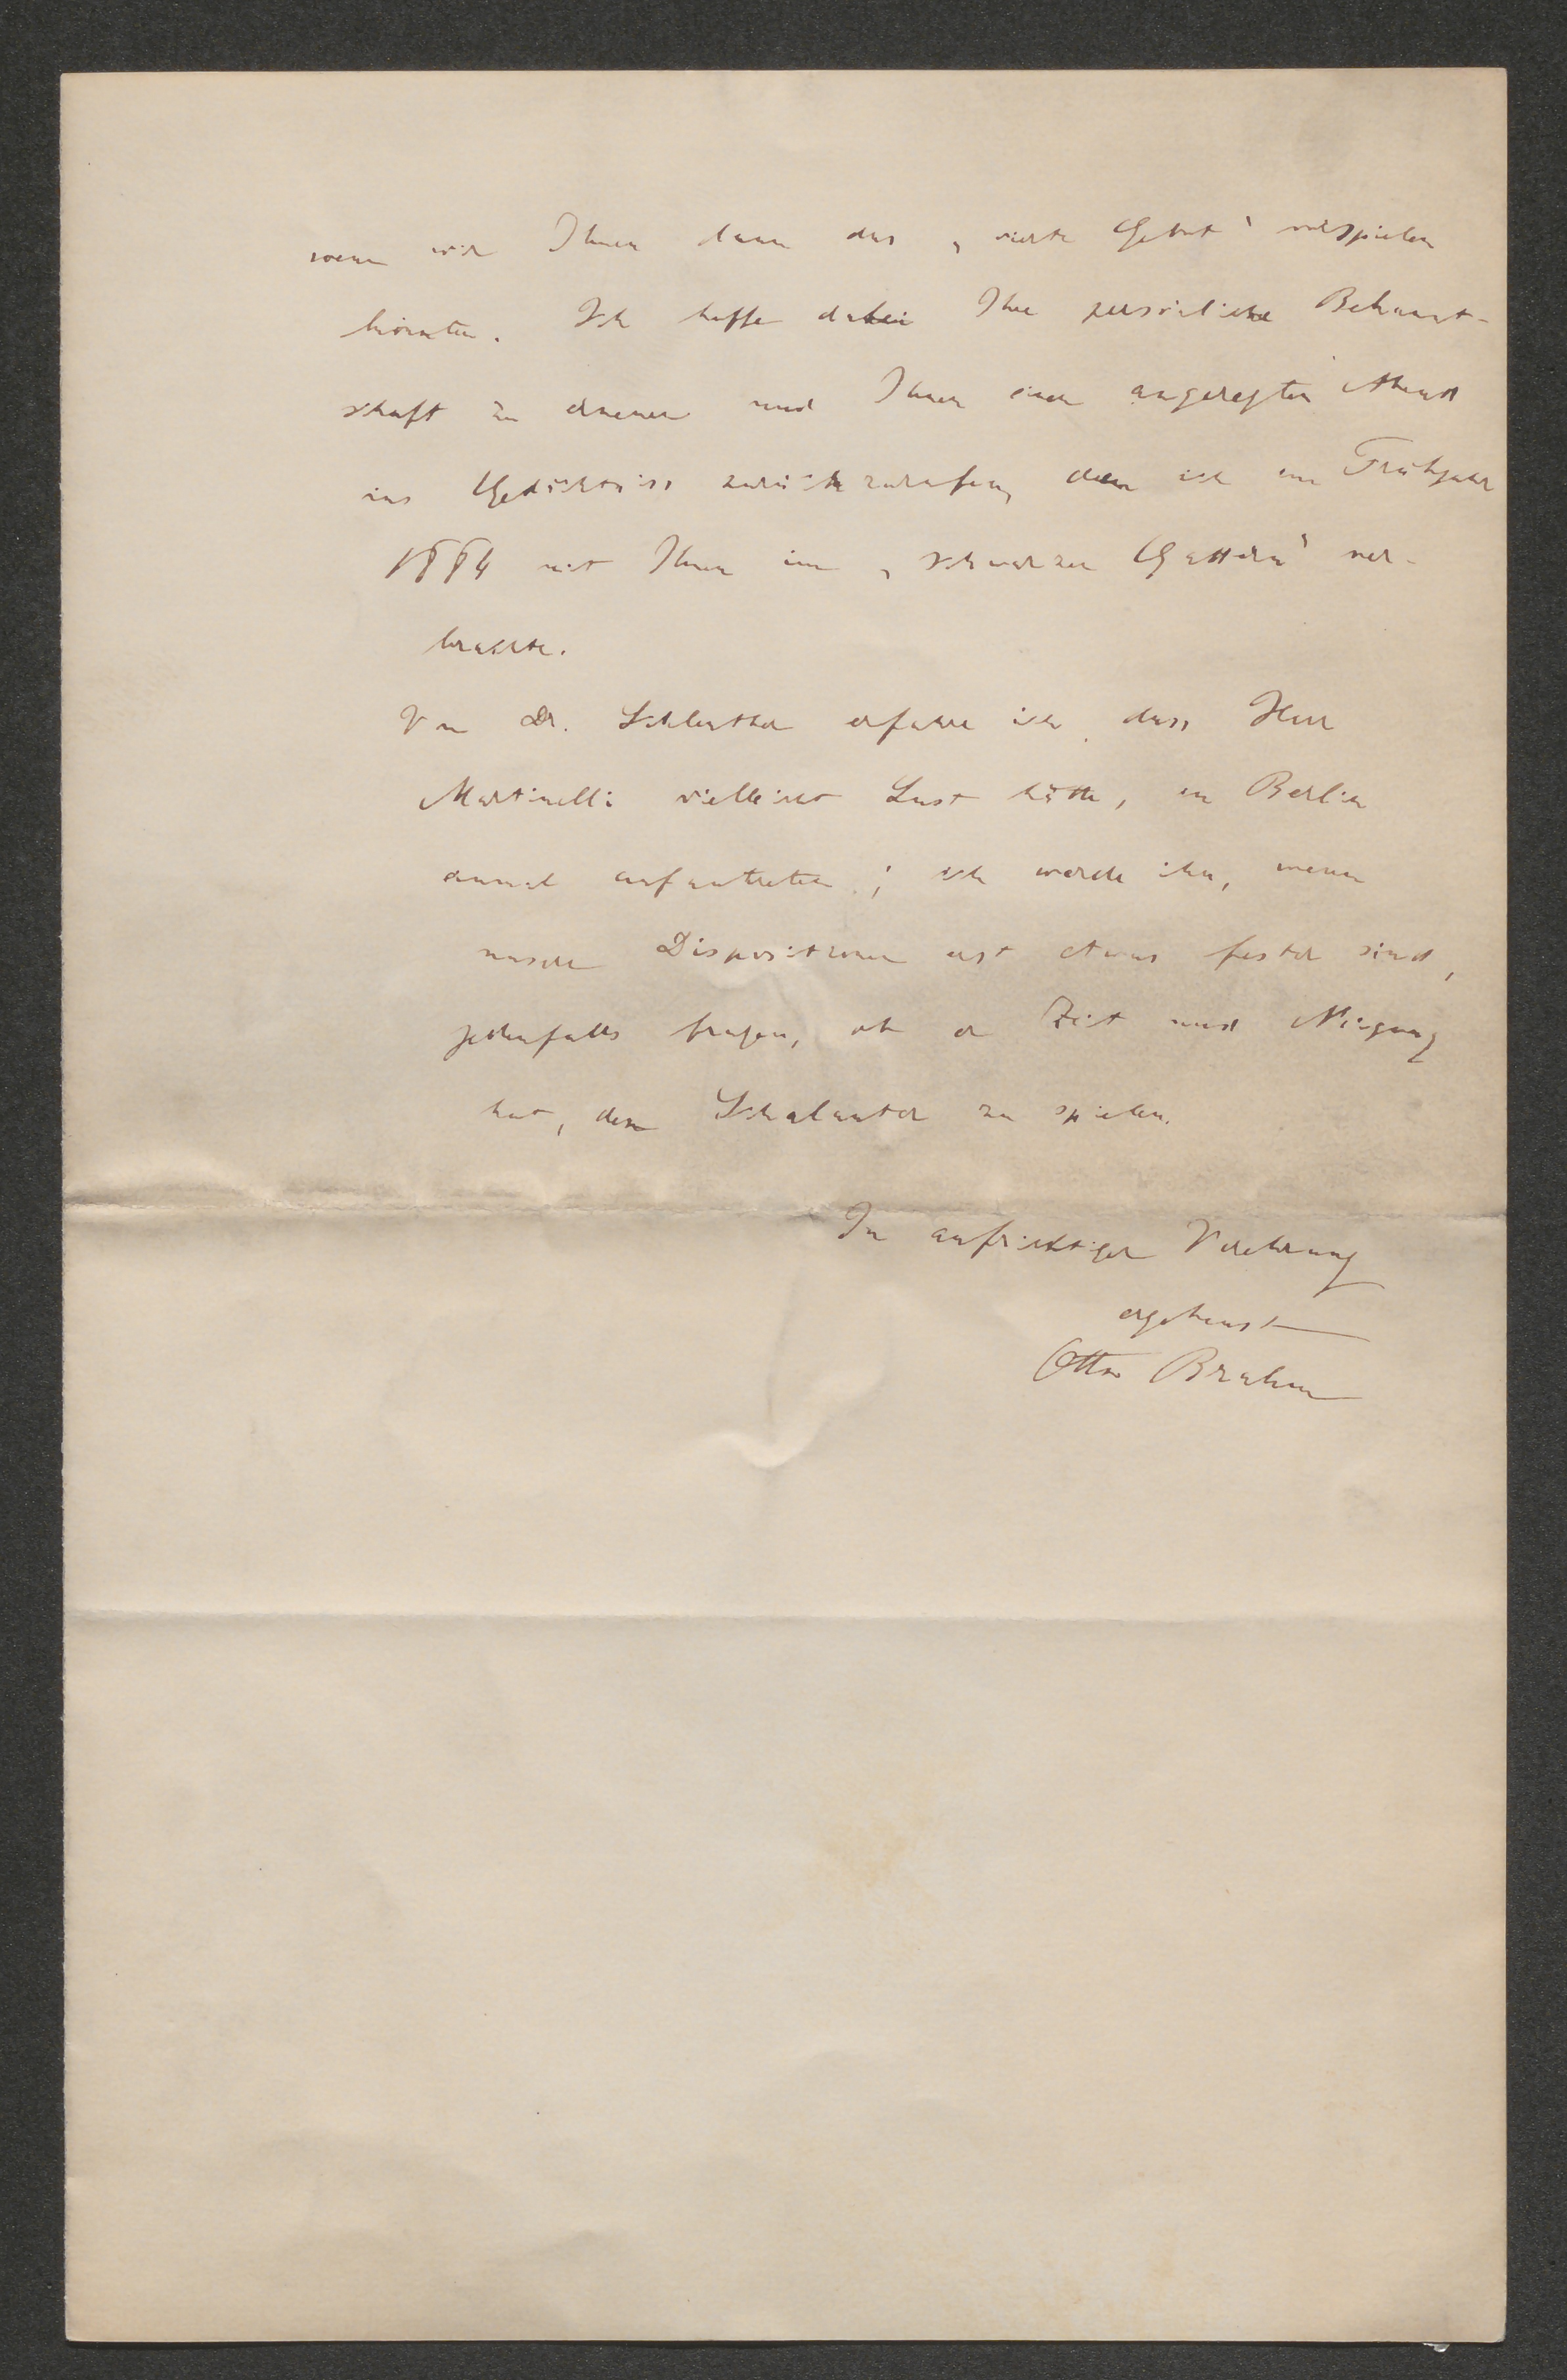 wenn wir Ihnen dann das „vierte Gebot“ vorspielen
könnten. Ich hoffe dabei Ihre persönliche Bekannt-
schaft zu erneuern und Ihnen einen angeregten Abend
ins Gedächtniss zurückzurufen, den ich im Frühjahr
1884 mit Ihnen im „schwarzen Gattern“ ver-
brachte.
Von Dr. Schlenther erfahre ich, dass Herr
Martinelli vielleicht Lust hätte, in Berlin
einmal aufzutreten; ich werde ihn, wenn
unsere Dispositionen erst etwas fester sind,
jedenfalls fragen, ob er Zeit und Neigung
hat, den Schalanter zu spielen.
In aufrichtiger Verehrung
ergebenst
Otto Brahm